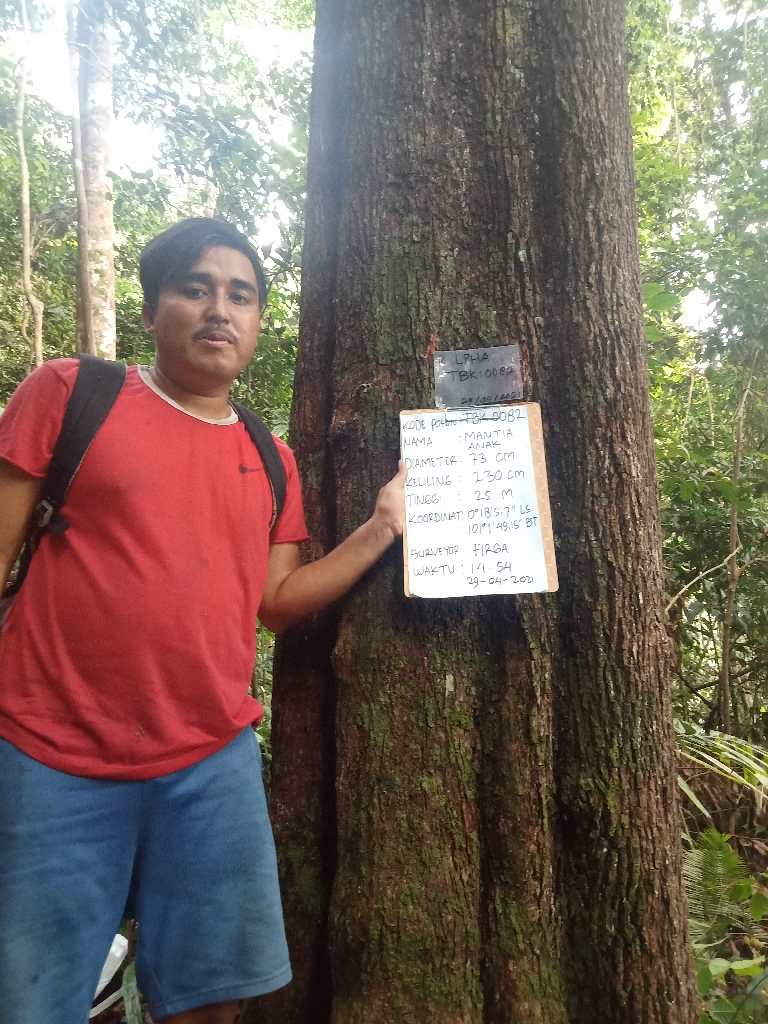 LPHA
TBK:0082
29/04/2021
KODE POHON:TBK 0082
NAMA : MANTIA
ANAK
DIAMETER: 73 CM
KELILING : 230 CM
TINGGI : 25 M
KOORDINAT: 0°18'5,7" LS
101°1'49.15" BT
SURVEYOR: FIRGA
WAKTU : 14.54
29-04-2021